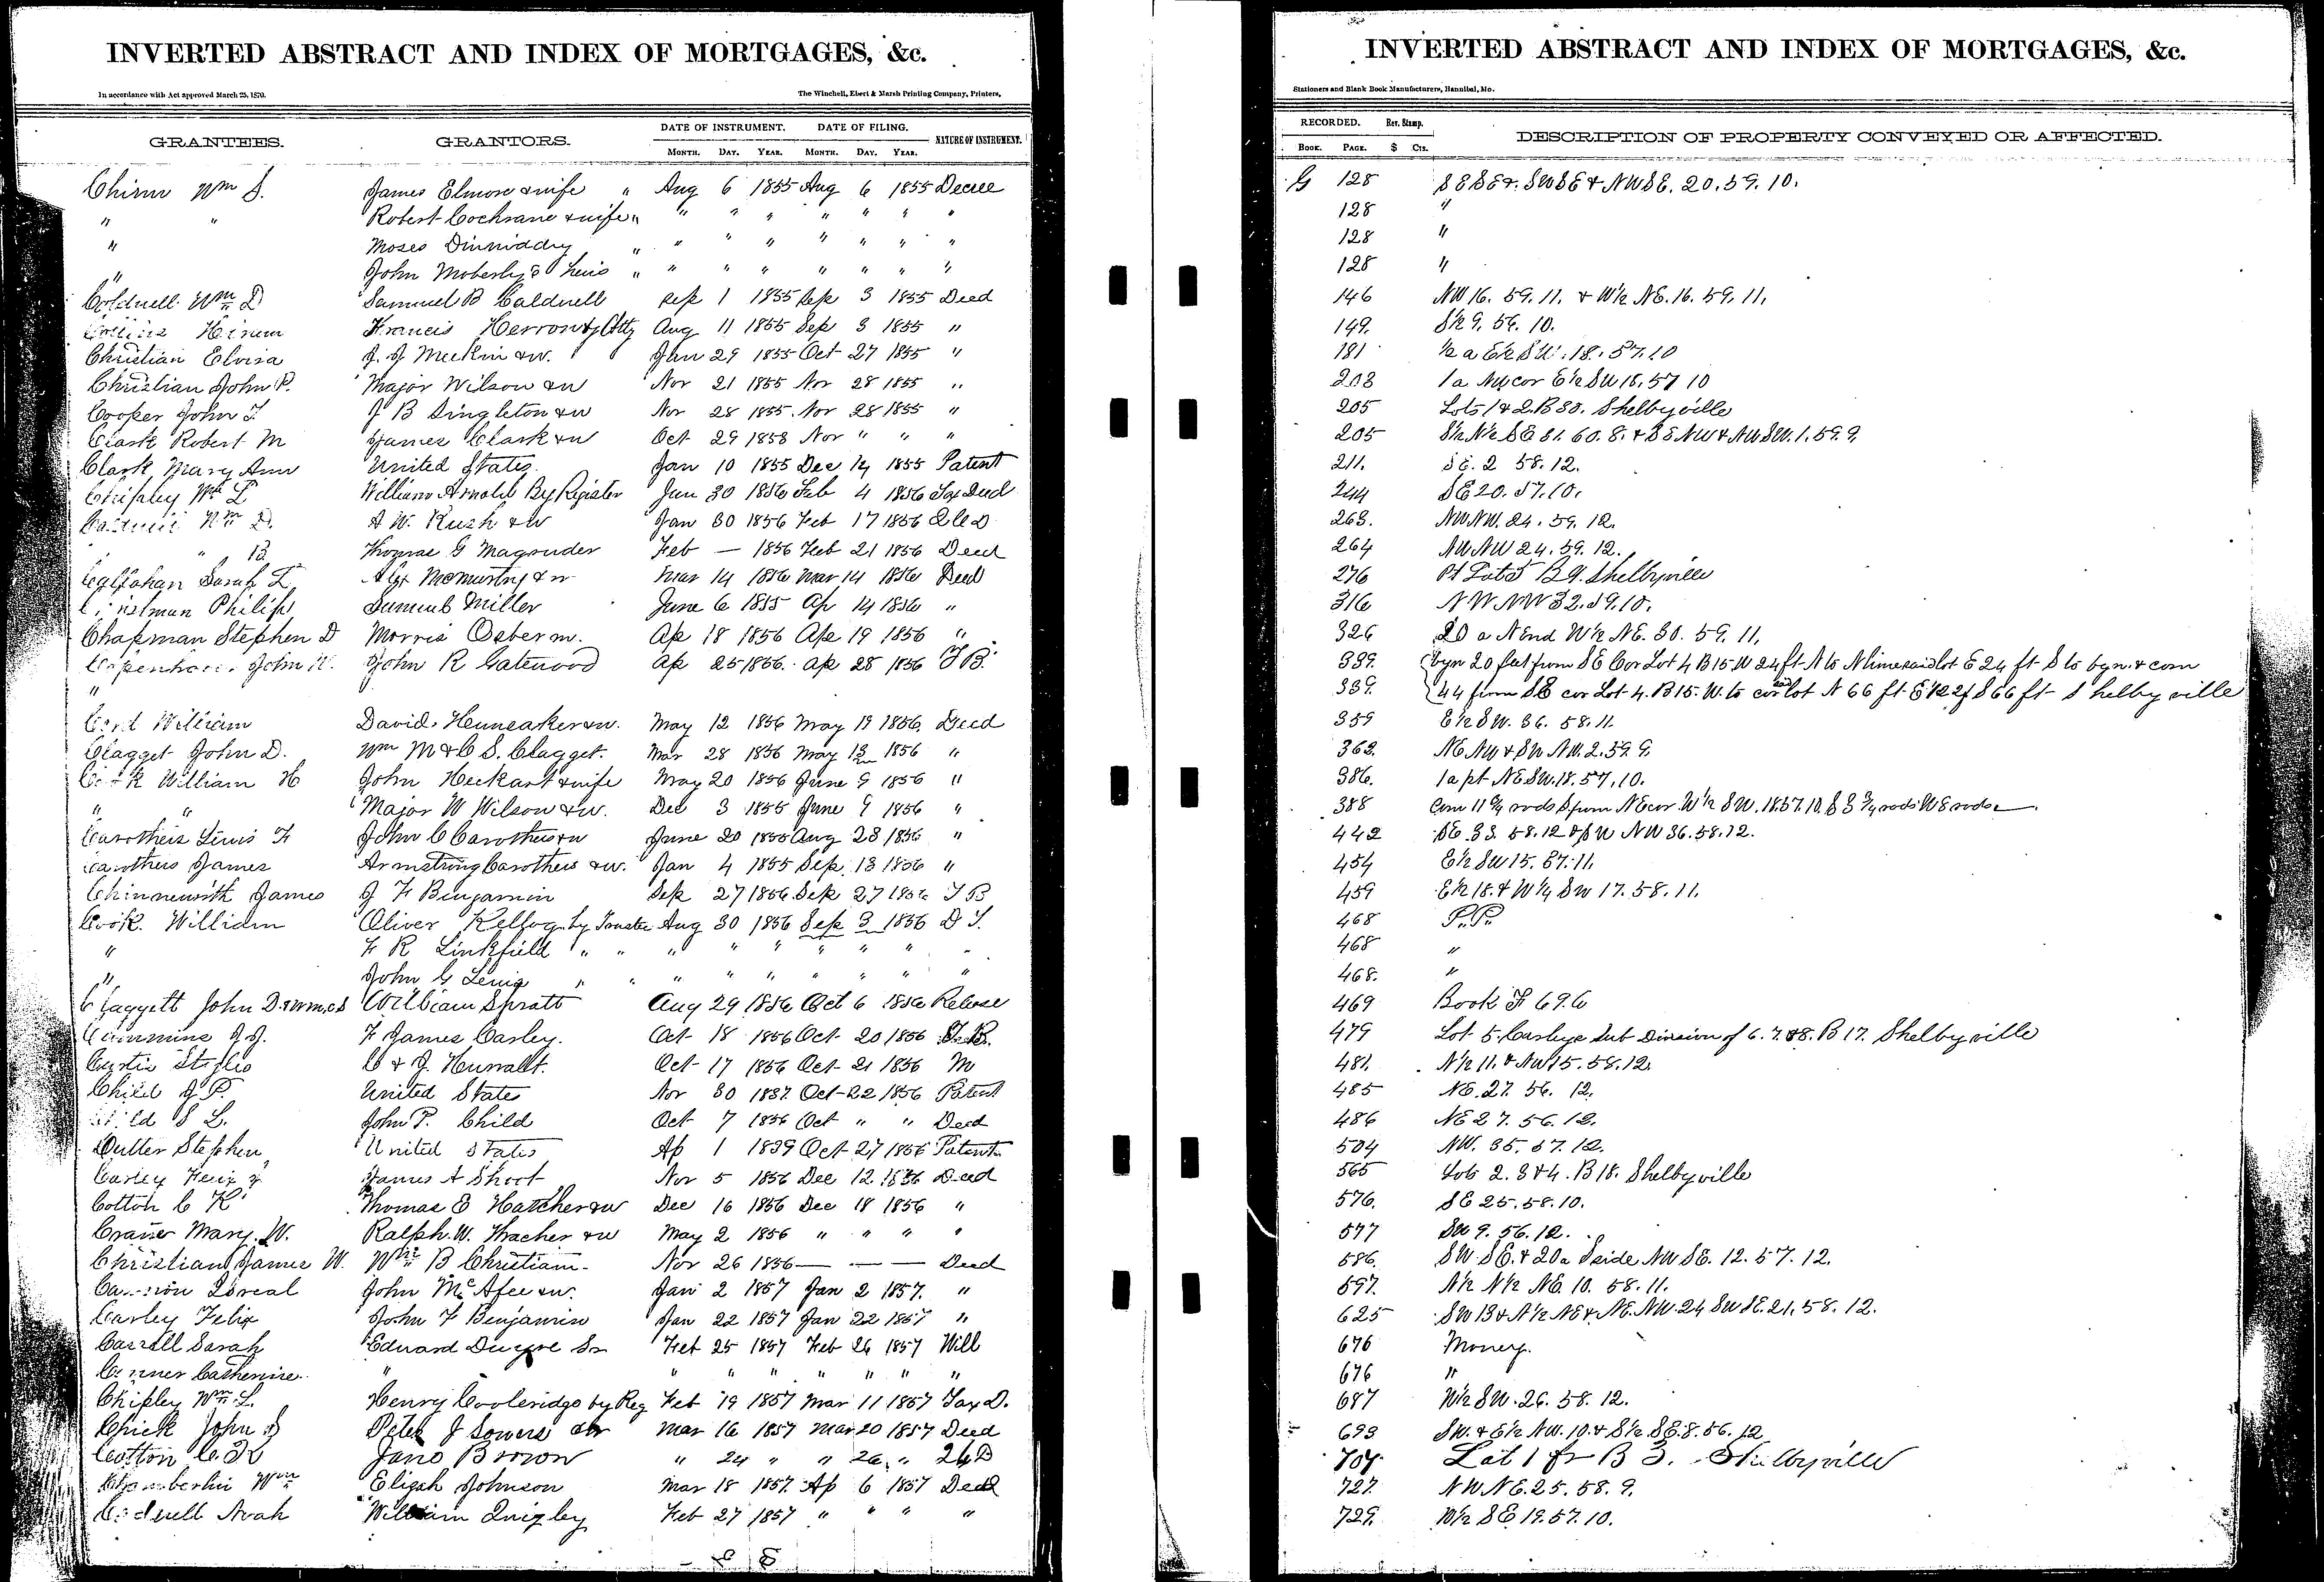 INVERTED ABSTRACT AND INDEX OF MORTGAGES, &c.
In accordance with Act approved March 25, 1870. The Winchell, Ebert & Marsh Printing Company, Printers,
GRANTEES. GRANTORS. DATE OF INSTRUMENT. DATE OF FILING. NATURE OF INSTRUMENT.
MONTH. DAY. YEAR. MONTH. DAY. YEAR.
Chinn Wm S. James Elmore & wife " Aug 6 1855 Aug 6 1855 Decree
" " Robert Cochrane & wife " " " " " " " "
" Moses Dinniddy " " " " " " " "
" John Moberly's heirs " " " " " " " "
Coldwell Wm D Samuel B Caldwell Sep 1 1855 Sep 3 1855 Deed
Collins Hiram Francis Herron by Atty Aug 11 1855 Sep 3 1855 "
Christian Elvira J. J Meekin & w. Jan 29 1855 Oct 27 1855 "
Christian John P. Major Wilson & w Nov 21 1855 Nov 28 1855 "
Cooper John T. J B Singleton & w Nov 28 1855 Nov 28 1855 "
Clark Robert M James Clark & w Oct 29 1853 Nov " " "
Clark Mary Ann United States Jan 10 1855 Dec 14 1855 Patent
Chipley Wm L William Arnold By Register Jan 30 1856 Feb 4 1856 Tax Deed
Wm D. A W. Rush & w Jan 30 1856 Feb 17 1856 Q C D
" " Thomas G Magruder Feb — 1856 Feb 21 1856 Deed
Sarah Alex McMurtry & w Mar 14 1856 Mar 14 1856 Deed
Philip Samuel Miller June 6 1855 Ap 14 1856 "
Chapman Stephen D Morris Osborn. Ap 18 1856 Ap 19 1856 "
John John R Gatewood Ap 25 1856 Ap 28 1856 T B.
"
William David & w. May 12 1856 May 19 1856 Deed
Clagget John D. Wm M & C S. Clagget. Mar 28 1856 May 13 1856 "
William H John Heckart & wife May 20 1856 June 9 1856 "
" " Major W Wilson & w. Dec 3 1855 June 9 1856 "
Carothers Lewis F John C Carothers & w June 20 1855 Aug 23 1856 "
Carothers James Armstrong Carothers & w. Jan 4 1855 Sep 13 1856 "
Chinneworth James J F Benjamin Sep 27 1856 Sep 27 1856 T B
Cook. William Oliver Kellog by Trustee Aug 30 1856 Sep 3 1856 D T.
" F R Linkfield " " " " " " " " "
" John G Lewis " " " " " " " " "
Claggett John Downes William Spratt Aug 29 1856 Oct 6 1856 Release
Cummins J J. F James Carley. Oct 18 1856 Oct 20 1856 T. B.
Curtis C & J. Oct 17 1856 Oct 21 1856 M
Child J P. United States Nov 30 1837 Oct 22 1856 Patent
Child S L. John P. Child Oct 7 1856 Oct " " Deed
Stephen United States Ap 1 1839 Oct 27 1856 Patent
Carley James A Shoot Nov 5 1856 Dec 12 1856 Deed
Cotton C K Thomas E Hatcher & w Dec 16 1856 Dec 18 1856 "
Mary W. Ralph W. Thacher & w May 2 1856 " " " "
Christian James W. Wm B Christian Nov 26 1856 — — — Deed
John McAfee & w. Jan 2 1857 Jan 2 1857. "
Carley Felix John F Benjamin Jan 22 1857 Jan 22 1857 "
Carroll Sarah Edward Sr Feb 25 1857 Feb 26 1857 Will
Conner Catherine " " " " " " " "
Chipley Wm L. Henry Cooleridge by Reg Feb 19 1857 Mar 11 1857 Tax D.
Chick John Peter J Sowers & w Mar 16 1857 Mar 20 1857 Deed
Cotton C. K Jane Brown " 24 " " 26 "
Chamberlin Wm Elijah Johnson Mar 18 1857 Ap 6 1857 Deed
Noah William Quigley Feb 27 1857 " " " "
INVERTED ABSTRACT AND INDEX OF MORTGAGES, &c.
Stationers and Blank Book Manufacturers, Hannibal, Mo.
RECORDED. Rev. Stamp. DESCRIPTION OF PROPERTY CONVEYED OR AFFECTED.
BOOK. PAGE. $ CTS.
G 128 S E S E & SW SE & NW SE. 20. 59. 10.
128 "
128 "
128 "
146 NW 16. 59. 11. & W½ NE. 16. 59. 11.
149. S½ 9. 56. 10.
181 ½ a E½ SW. 18. 57. 10
203 1 a NW cor E½ SW 18. 57 10
205 Lots 1 & 2. B 30. Shelbyville
205 S½ N½ SE 31. 60. 8. & SE NW & NW SW. 1. 59. 9.
211. SE. 2 58. 12.
244 SE 20. 57. 10.
263. NW NW. 24. 59. 12.
264 NW NW 24. 59. 12.
276 Pt Lot 5 B 9. Shelbyville
316 NW NW 32. 59. 10.
326 20 a N End W½ NE. 30. 59. 11.
339. byn 20 feet from SE Cor Lot 4 B 15 W 24 ft N to N line said lot E 24 ft S to byn. & com
339. 44 from SE cor Lot 4. B 15. W. to cor said lot N 66 ft E ½ 2 ft S 66 ft Shelbyville
359 E½ SW. 36. 58. 11.
362. NE NW & SW NW. 2. 59. 9.
386. 1 a pt NE SW. 18. 57. 10.
388 Com 11 ¾ rods S from NE cor. W½ SW. 18. 57. 10. S 3 ¾ rods W 8 rods
442 SE 33. 58. 12 & SW NW 36. 58. 12.
454 E½ SW 15. 57. 11.
459 E½ 18. & W½ SW 17. 58. 11.
468 P. P.
468 "
468. "
469 Book F 696
479 Lot 5. Carleys Sub Division of 6. 7. & 8. B 17. Shelbyville
481. N½ 11. & NW 15. 58. 12.
485 NE. 27. 56. 12.
486 NE 27. 56. 12.
504 NW. 35. 57. 12.
565 Lots 2. 3 & 4. B 18. Shelbyville
576. SE 25. 58. 10.
577 SW 9. 56. 12.
586. SW SE. & 20 a S side NW SE. 12. 57. 12.
597. N½ N½ NE. 10. 58. 11.
625 SW 13 & N½ NE & NE. NW. 24 SW SE. 21. 58. 12.
676 Money.
676 "
687 W½ SW. 26. 58. 12.
693 SW. & E½ NW. 10. & S½ SE. 8. 56. 12
704 Lot 1 B 3. Shelbyville
727. NW NE. 25. 58. 9.
729. W½ SE 19. 57. 10.